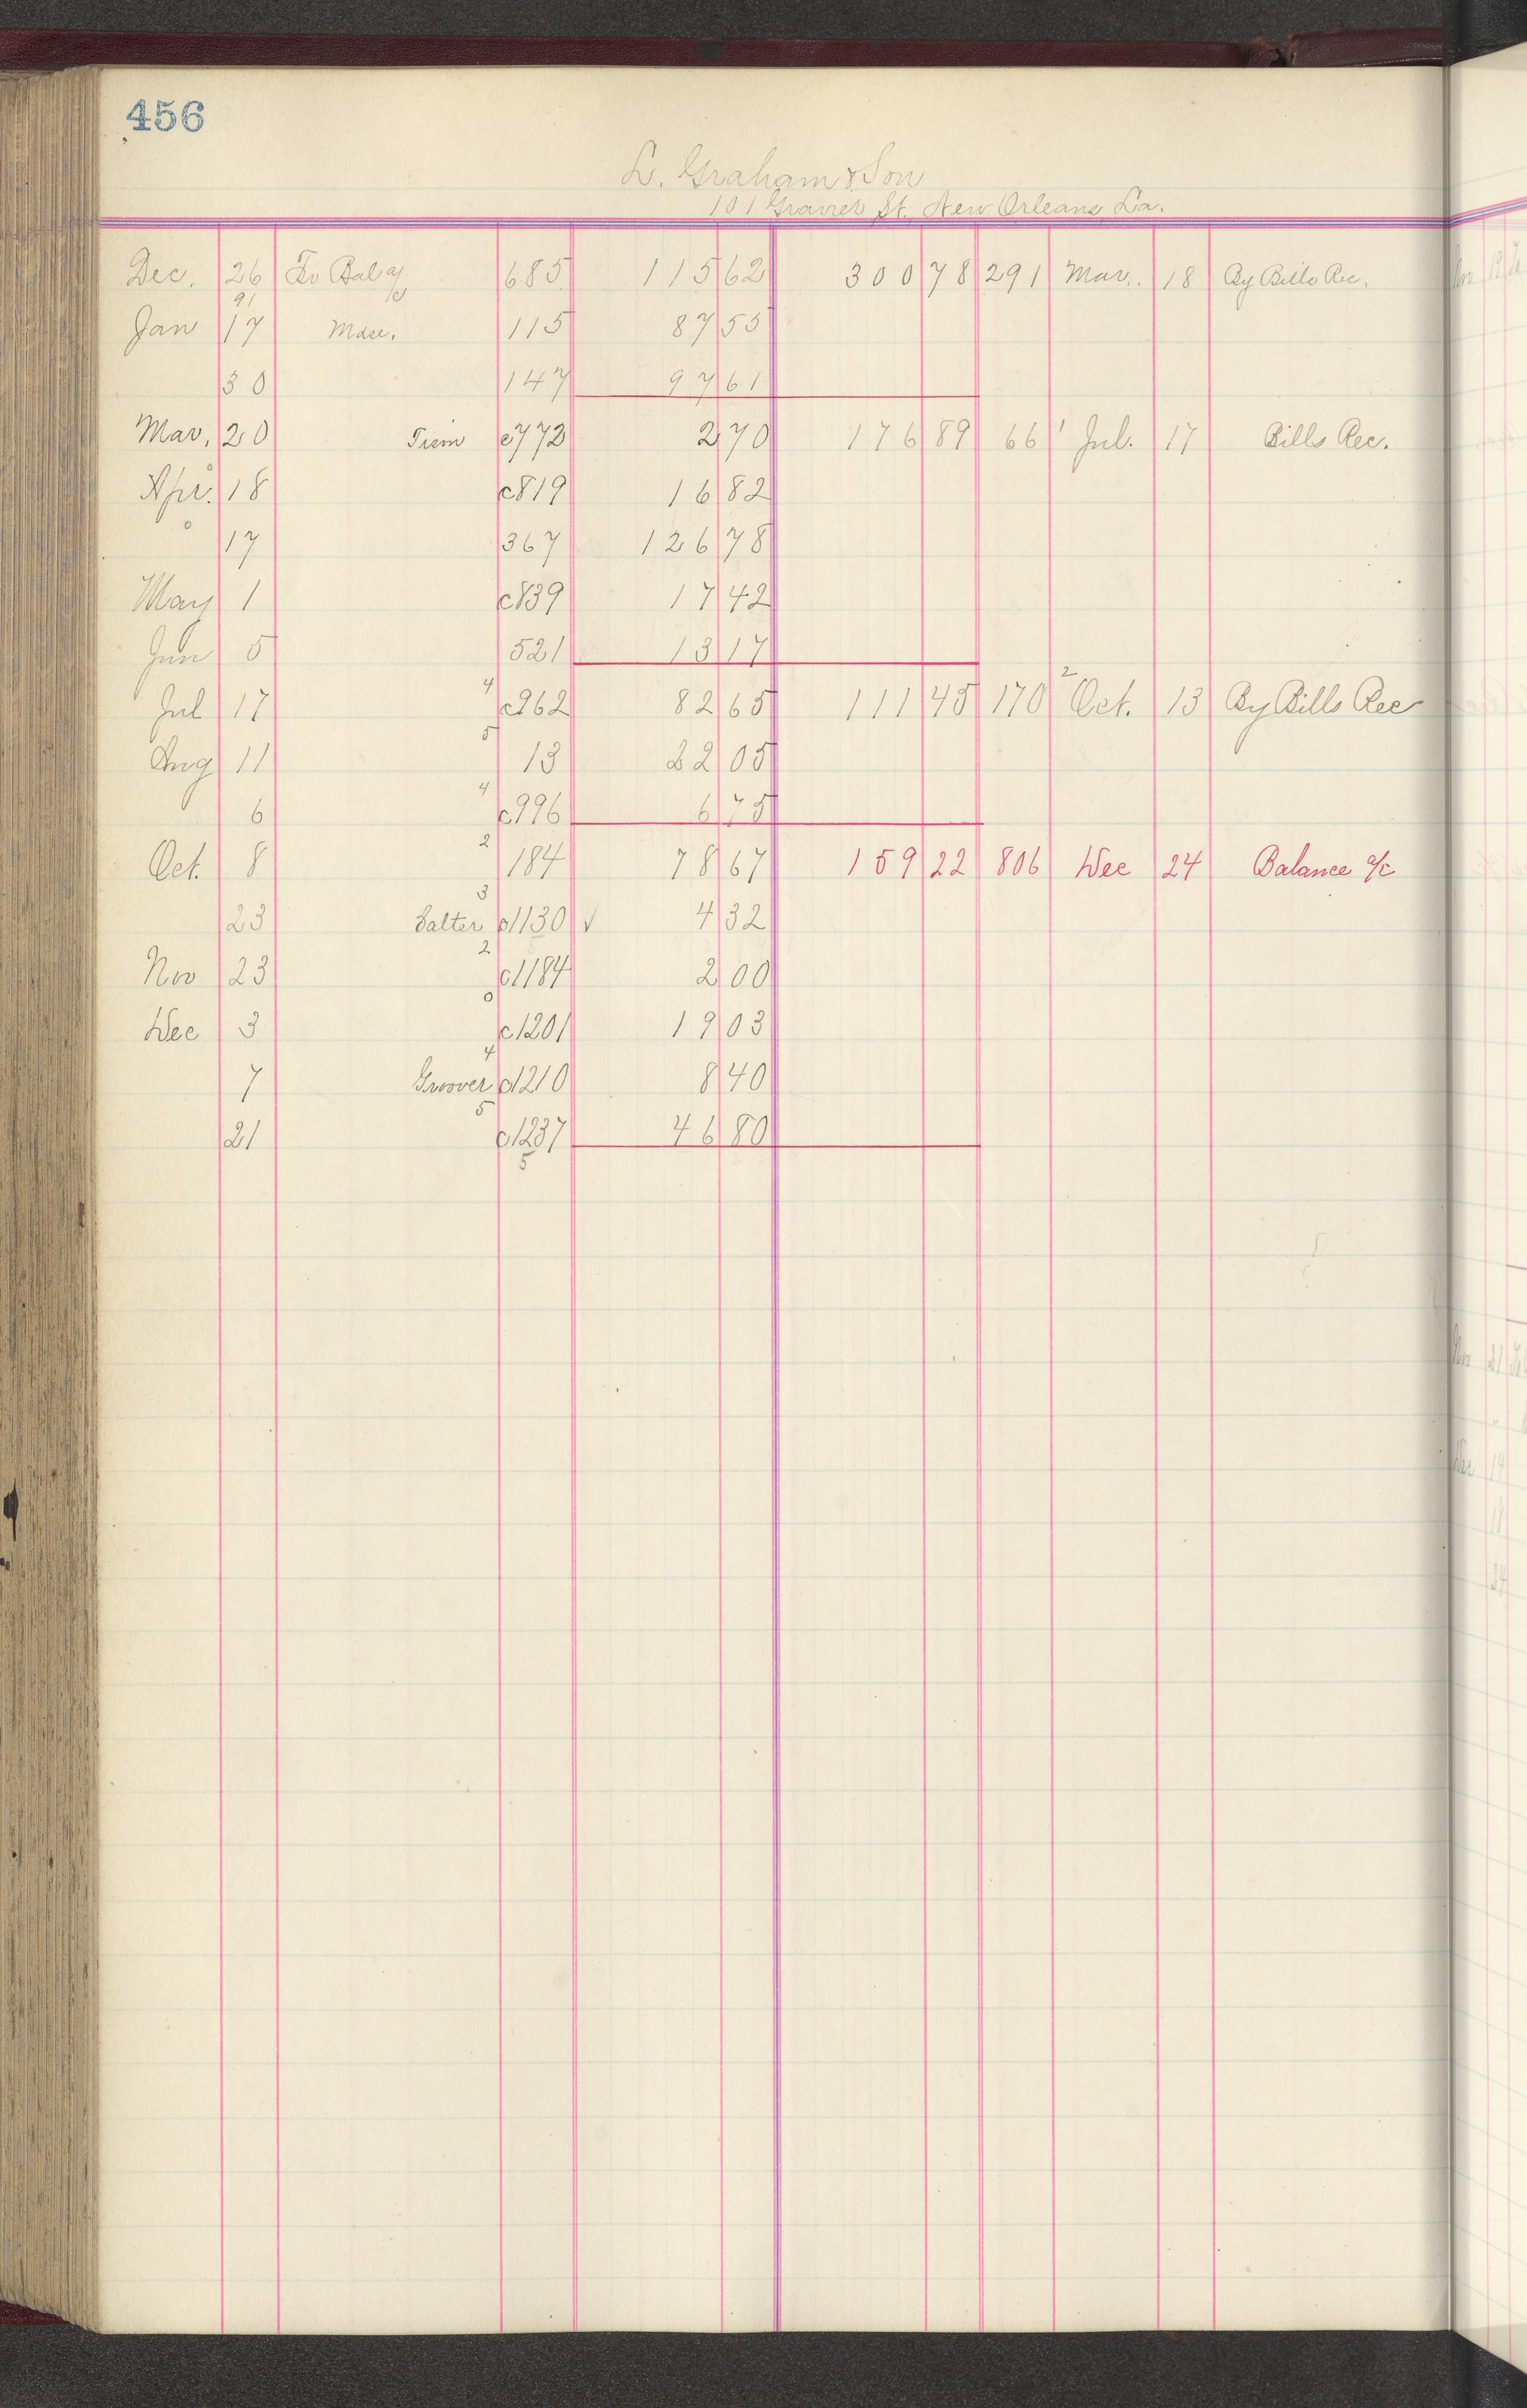 456
L. Graham & Son
101 Gravier St. New Orleans La.
Dec. 26 To Bal a/c 685 115 62 300 78 291 Mar. 18 By Bills Rec.
91
Jan 17 Mdse. 115 87 55
30 147 97 61
Mar. 20 Trim c772 2 70 176 89 66 1 Jul. 17 Bills Rec.
Apr. 18 c819 16 82
17 367 126 78
May 1 c839 17 42
Jun 5 521 13 17
Jul 17 4 c962 82 65 111 45 170 2 Oct. 13 By Bills Rec
Aug 11 5 13 22 05
6 4 c996 6 75
Oct. 8 2 184 78 67 159 22 806 Dec 24 Balance a/c
23 Salter 3 c1130 √ 4 32
Nov 23 2 c1184 2 00
Dec 3 0 c1201 19 03
7 Groover 4 c1210 8 40
21 5 c1237 46 80
5